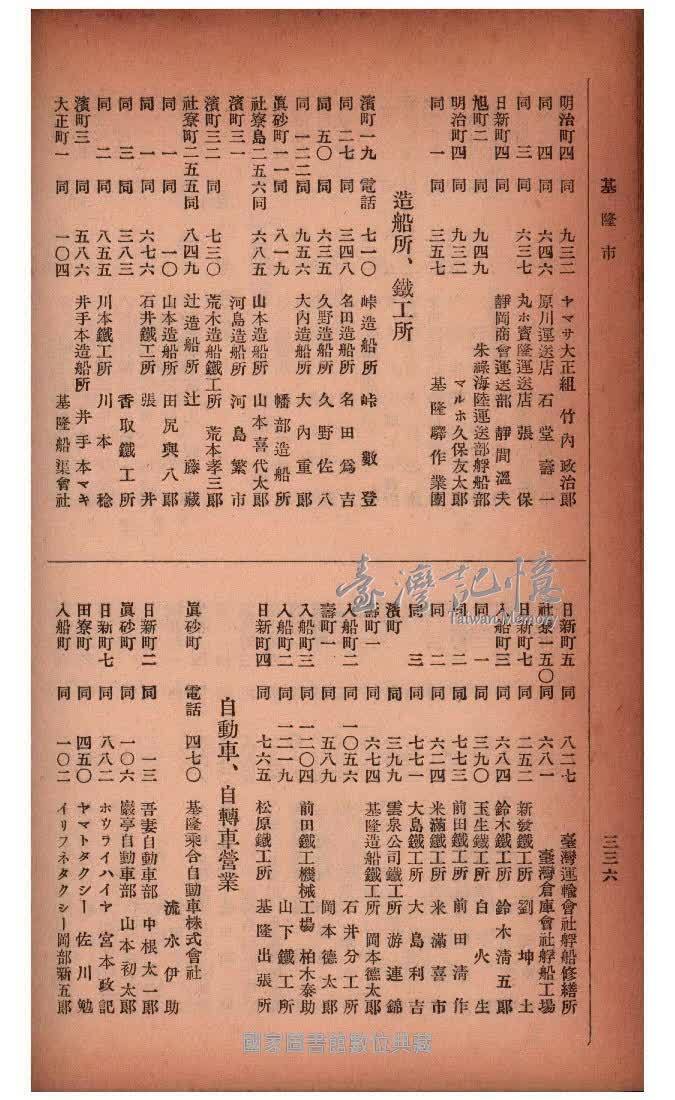 基隆市
三三六
明治町四 同 九三二 ヤマサ大正組 竹內政治郎
同 四 同 六四六 原川運送店 石堂壽一
同 三 同 六三七 丸ホ賓隆運送店 張保
日新町四 同 靜岡商會運送部 靜間溫夫
旭町二 同 九四九 朱祿海陸運送部艀船部
明治町四 同 九三二 マルホ久保友太郎
同 一 同 三五七 基隆驛作業團
造船所、鐵工所
濱町一九 電話 七一〇 峠造船所 峠數登
同 二七 同 三四八 名田造船所 名田爲吉
同 五〇 同 六三五 久野造船所 久野佐八
同 一二二 同 九五六 大內造船所 大內重郎
眞砂町一一 同 八一九 幡部造船所
社寮島二五六 同 六八五 山本造船所 山本喜代太郎
濱町三一 河島造船所 河島繁市
濱町三二 同 七三〇 荒木造船鐵工所 荒本孝三郎
社寮町二五五 同 八四九 辻造船所 辻藤藏
同 一 同 一〇 山本造船所 田尻與八郎
同 一 同 六七六 石井鐵工所 張井
同 三 同 三八三 香取鐵工所
同 二 同 八五五 川本鐵工所 川本稔
濱町三 同 五八六 井手本造船所 井手本マキ
大正町一 同 一〇四 基隆船渠會社
日新町五 同 八二七 臺灣運輸會社艀船修繕所
社寮一五〇 同 六八一 臺灣倉庫會社艀船工場
日新町七 同 二五二 新發鐵工所 劉坤土
入船町三 同 六八四 鈴木鐵工所 鈴木淸五郎
同 一 同 三九〇 玉生鐵工所 白火生
同 二 同 七七三 前田鐵工所 前田淸作
同 二 同 六二四 米滿鐵工所 米滿喜市
同 三 同 七七一 大島鐵工所 大島利吉
濱町 同 三九九 雲泉公司鐵工所 游連錦
壽町一 同 六七四 基隆造船鐵工所 岡本德太郎
入船町二 同 一〇五六 石井分工所
壽町一 同 五八九 岡本德太郎
入船町三 同 一二〇四 前田鐵工機械工場 柏木泰助
入船町二 同 一二一九 山下鐵工所
日新町四 同 七六五 松原鐵工所 基隆出張所
自動車、自轉車營業
眞砂町 電話 四七〇 基隆乘合自動車株式會社
流水伊助
日新町二 同 一三 吾妻自動車部 中根太一郎
眞砂町 同 一〇六 巖亭自動車部 山本初太郎
日新町七 同 八八二 ホウライハイヤ 宮本政記
田寮町 同 四五〇 ヤマトタクシー 佐川勉
入船町 同 一〇二 イリフネタクシー 岡部新五郎
臺灣記憶
Taiwan Memory
國家圖書館數位典藏